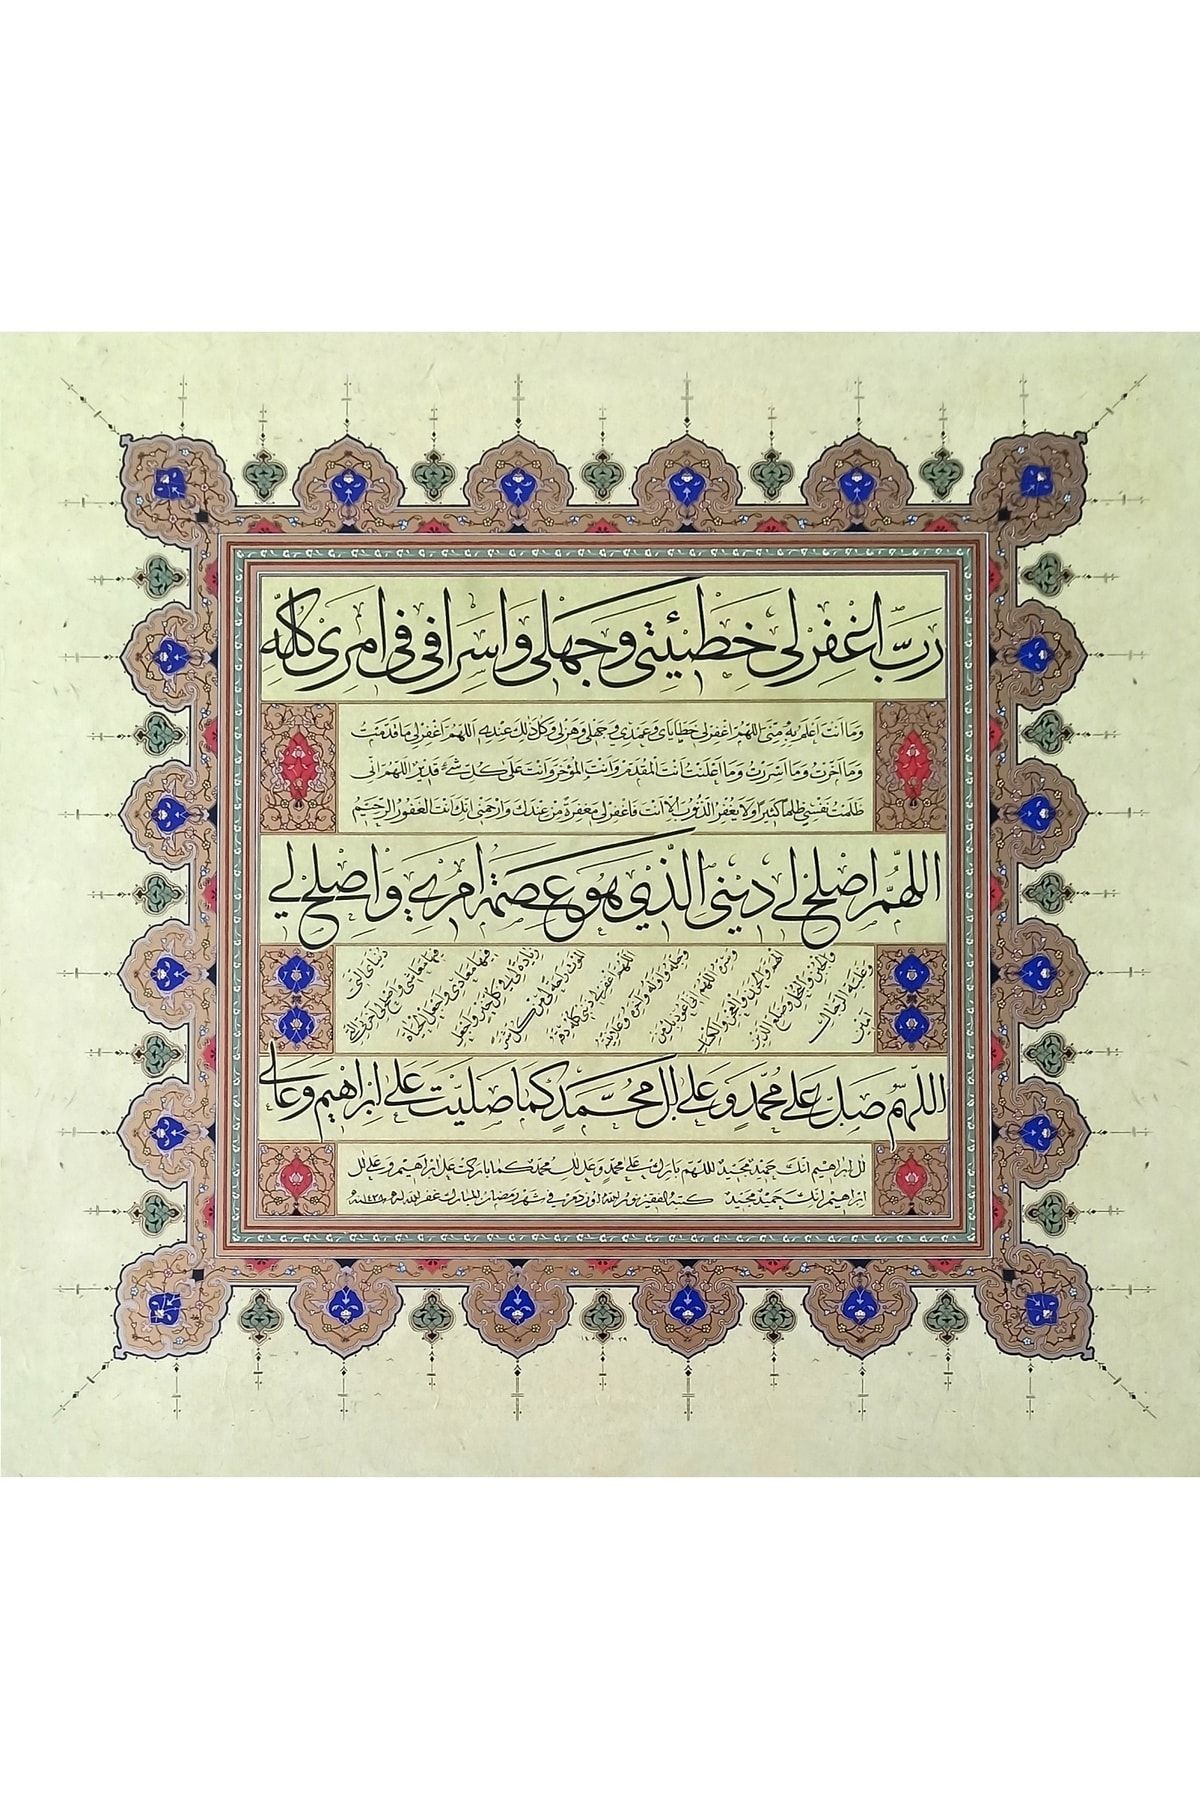 رَبِّ اغْفِرْ لِي خَطِيئَتِي وَجَهْلِي وَاِسْرَافِي فِي اَمْرِي كُلِّهِ
وَمَا اَنْتَ اَعْلَمُ بِهِ مِنِّي اَللّٰهُمَّ اغْفِرْلِي خَطَايَايَ وَعَمْدِي وَجَهْلِي وَهَزْلِي وَكُلُّ ذٰلِكَ عِنْدِي اَللّٰهُمَّ اغْفِرْلِي مَا قَدَّمْتُ
وَمَا اَخَّرْتُ وَمَا اَسْرَرْتُ وَمَا اَعْلَنْتُ اَنْتَ الْمُقَدِّمُ وَاَنْتَ الْمُؤَخِّرُ وَاَنْتَ عَلٰى كُلِّ شَيْءٍ قَدِيرٌ اَللّٰهُمَّ اِنِّي
ظَلَمْتُ نَفْسِي ظُلْمًا كَثِيرًا وَلَا يَغْفِرُ الذُّنُوبَ اِلَّا اَنْتَ فَاغْفِرْ لِي مَغْفِرَةً مِنْ عِنْدِكَ وَارْحَمْنِي اِنَّكَ اَنْتَ الْغَفُورُ الرَّحِيمُ
اَللّٰهُمَّ اَصْلِحْ لِي دِينِيَ الَّذِي هُوَ عِصْمَةُ اَمْرِي وَاَصْلِحْ لِي
دُنْيَايَ الَّتِي
فِيهَا مَعَاشِي وَاَصْلِحْ لِي آخِرَتِي الَّتِي
فِيهَا مَعَادِي وَاجْعَلِ الْحَيَاةَ
زِيَادَةً لِي فِي كُلِّ خَيْرٍ وَاجْعَلِ
الْمَوْتَ رَاحَةً لِي مِنْ كُلِّ شَرٍّ
اَللّٰهُمَّ اغْفِرْ لِي ذَنْبِي كُلَّهُ دِقَّهُ
وَجِلَّهُ وَاَوَّلَهُ وَآخِرَهُ وَعَلَانِيَتَهُ
وَسِرَّهُ اَللّٰهُمَّ اِنِّي اَعُوذُ بِكَ مِنَ
الْهَمِّ وَالْحَزَنِ وَالْعَجْزِ وَالْكَسَلِ
وَالْجُبْنِ وَالْبُخْلِ وَضَلَعِ الدَّيْنِ
وَغَلَبَةِ الرِّجَالِ
آمِينَ
اَللّٰهُمَّ صَلِّ عَلٰى مُحَمَّدٍ وَعَلٰى اٰلِ مُحَمَّدٍ كَمَا صَلَّيْتَ عَلٰى اِبْرَاهِيمَ وَعَلٰى
اٰلِ اِبْرَاهِيمَ اِنَّكَ حَمِيدٌ مَجِيدٌ اَللّٰهُمَّ بَارِكْ عَلٰى مُحَمَّدٍ وَعَلٰى اٰلِ مُحَمَّدٍ كَمَا بَارَكْتَ عَلٰى اِبْرَاهِيمَ وَعَلٰى اٰلِ
اِبْرَاهِيمَ اِنَّكَ حَمِيدٌ مَجِيدٌ كتبه الفقير في شهر رمضان المبارك غفر الله له